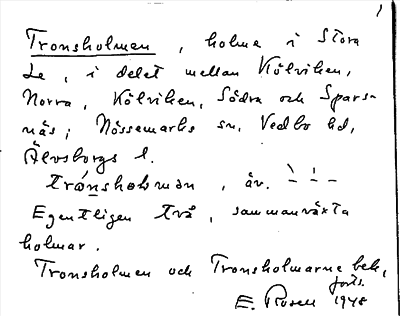 1
Tronsholmen, holme i Stora
Le, i delet mellan Kölviken,
Norra, Kölviken, Södra och Spars-
näs; Nössemarks sn, Vedbo hd,
Älvsborgs l.
trónshòlmən, äv. – – –
Egentligen två, sammanväxta
holmar.
Tronsholmen och Tronsholmarne bek,
forts.
E. Rosell 1948